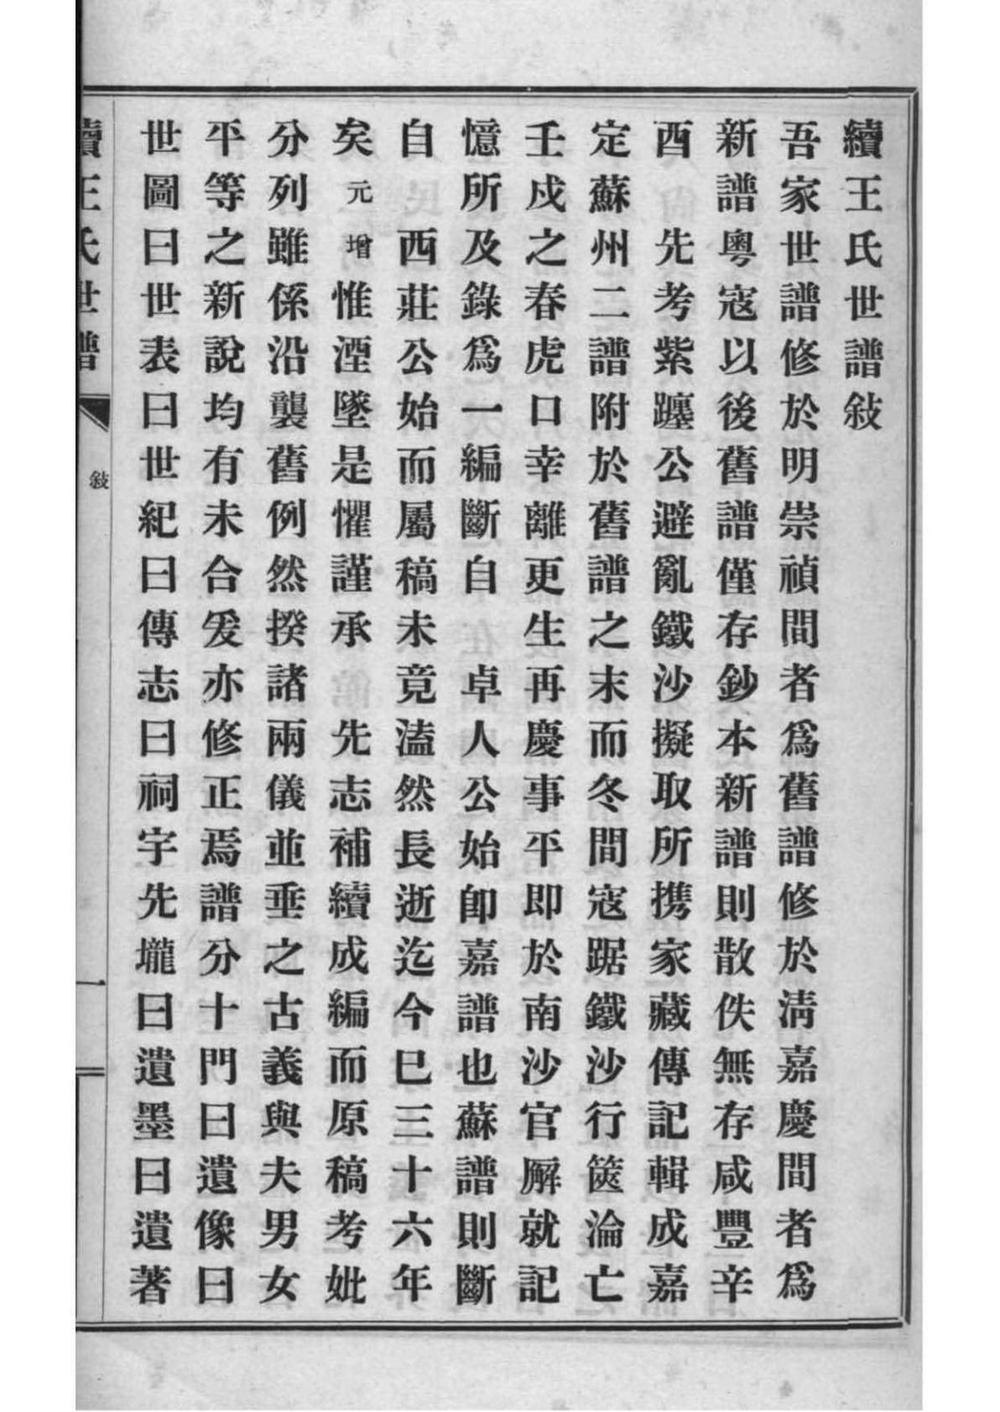 續王氏世譜敍
吾家世譜修於明崇禎間者爲舊譜修於清嘉慶間者爲
新譜粵寇以後舊譜僅存鈔本新譜則散佚無存咸豐辛
酉　先考紫躔公避亂鐵沙擬取所携家藏傳記輯成嘉
定蘇州二譜附於舊譜之末而冬間寇踞鐵沙行篋淪亡
壬戌之春虎口幸離更生再慶事平即於南沙官廨就記
憶所及錄爲一編斷自　卓人公始卽嘉譜也蘇譜則斷
自　西莊公始而屬稿未竟溘然長逝迄今巳三十六年
矣元增惟湮墜是懼謹承　先志補續成編而原稿考妣
分列雖係沿襲舊例然揆諸兩儀並垂之古義與夫男女
平等之新說均有未合爰亦修正焉譜分十門曰遺像曰
世圖曰世表曰世紀曰傳志曰祠宇先壠曰遺墨曰遺著
續王氏世譜　敍　一